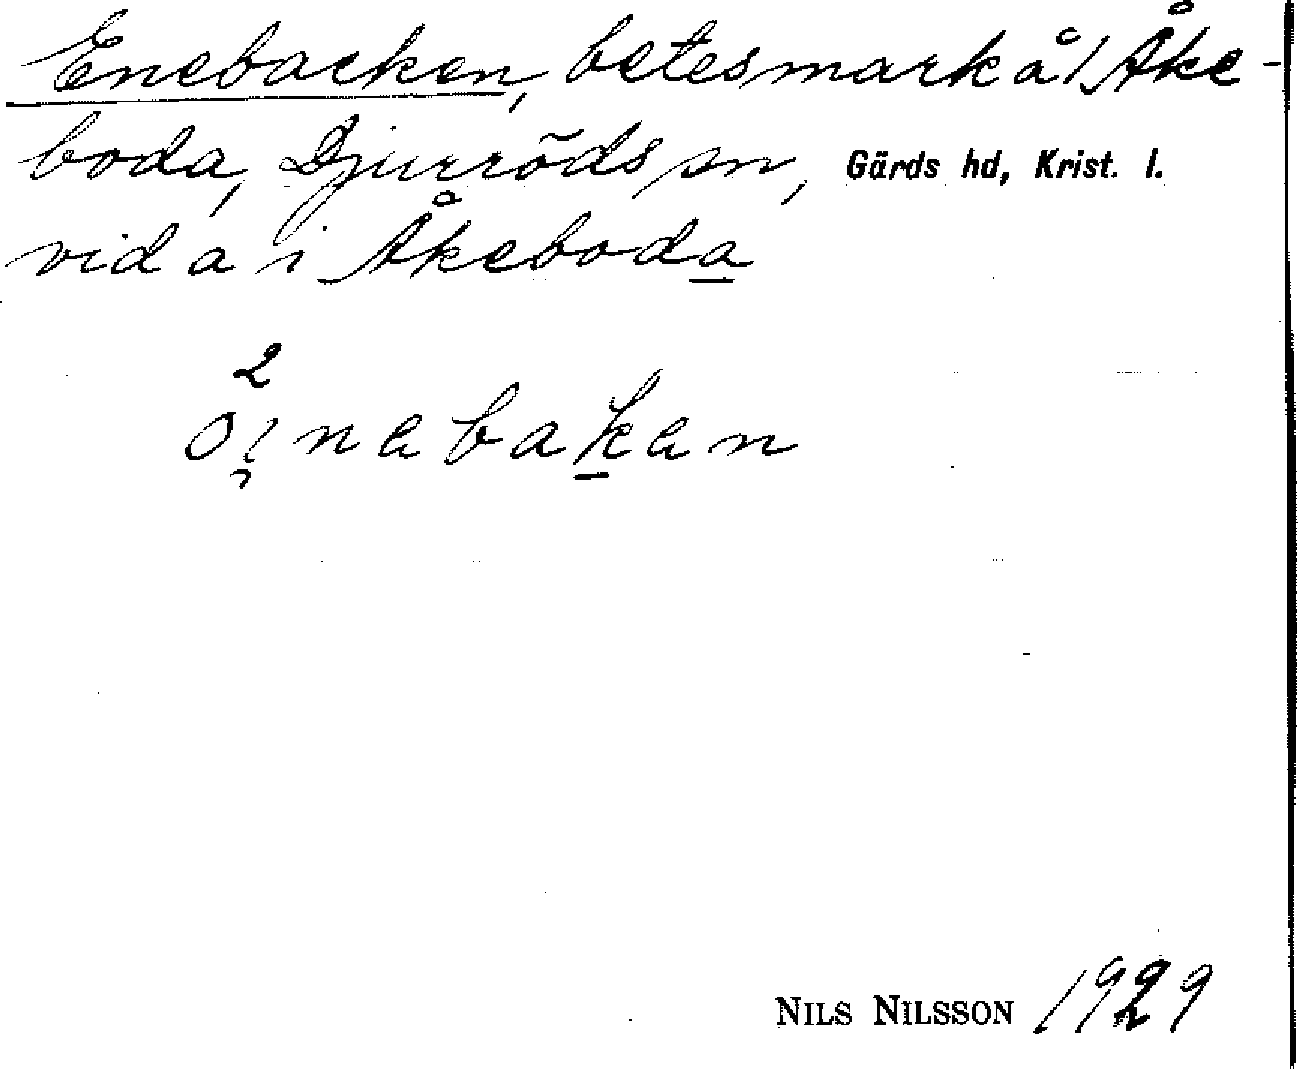 Enebacken, betesmark å 1 Åke-
boda, Djurröds sn, Gärds hd, Krist. l.
vid a i Åkeboda
2
oi̯nabakan
NILS NILSSON 1929